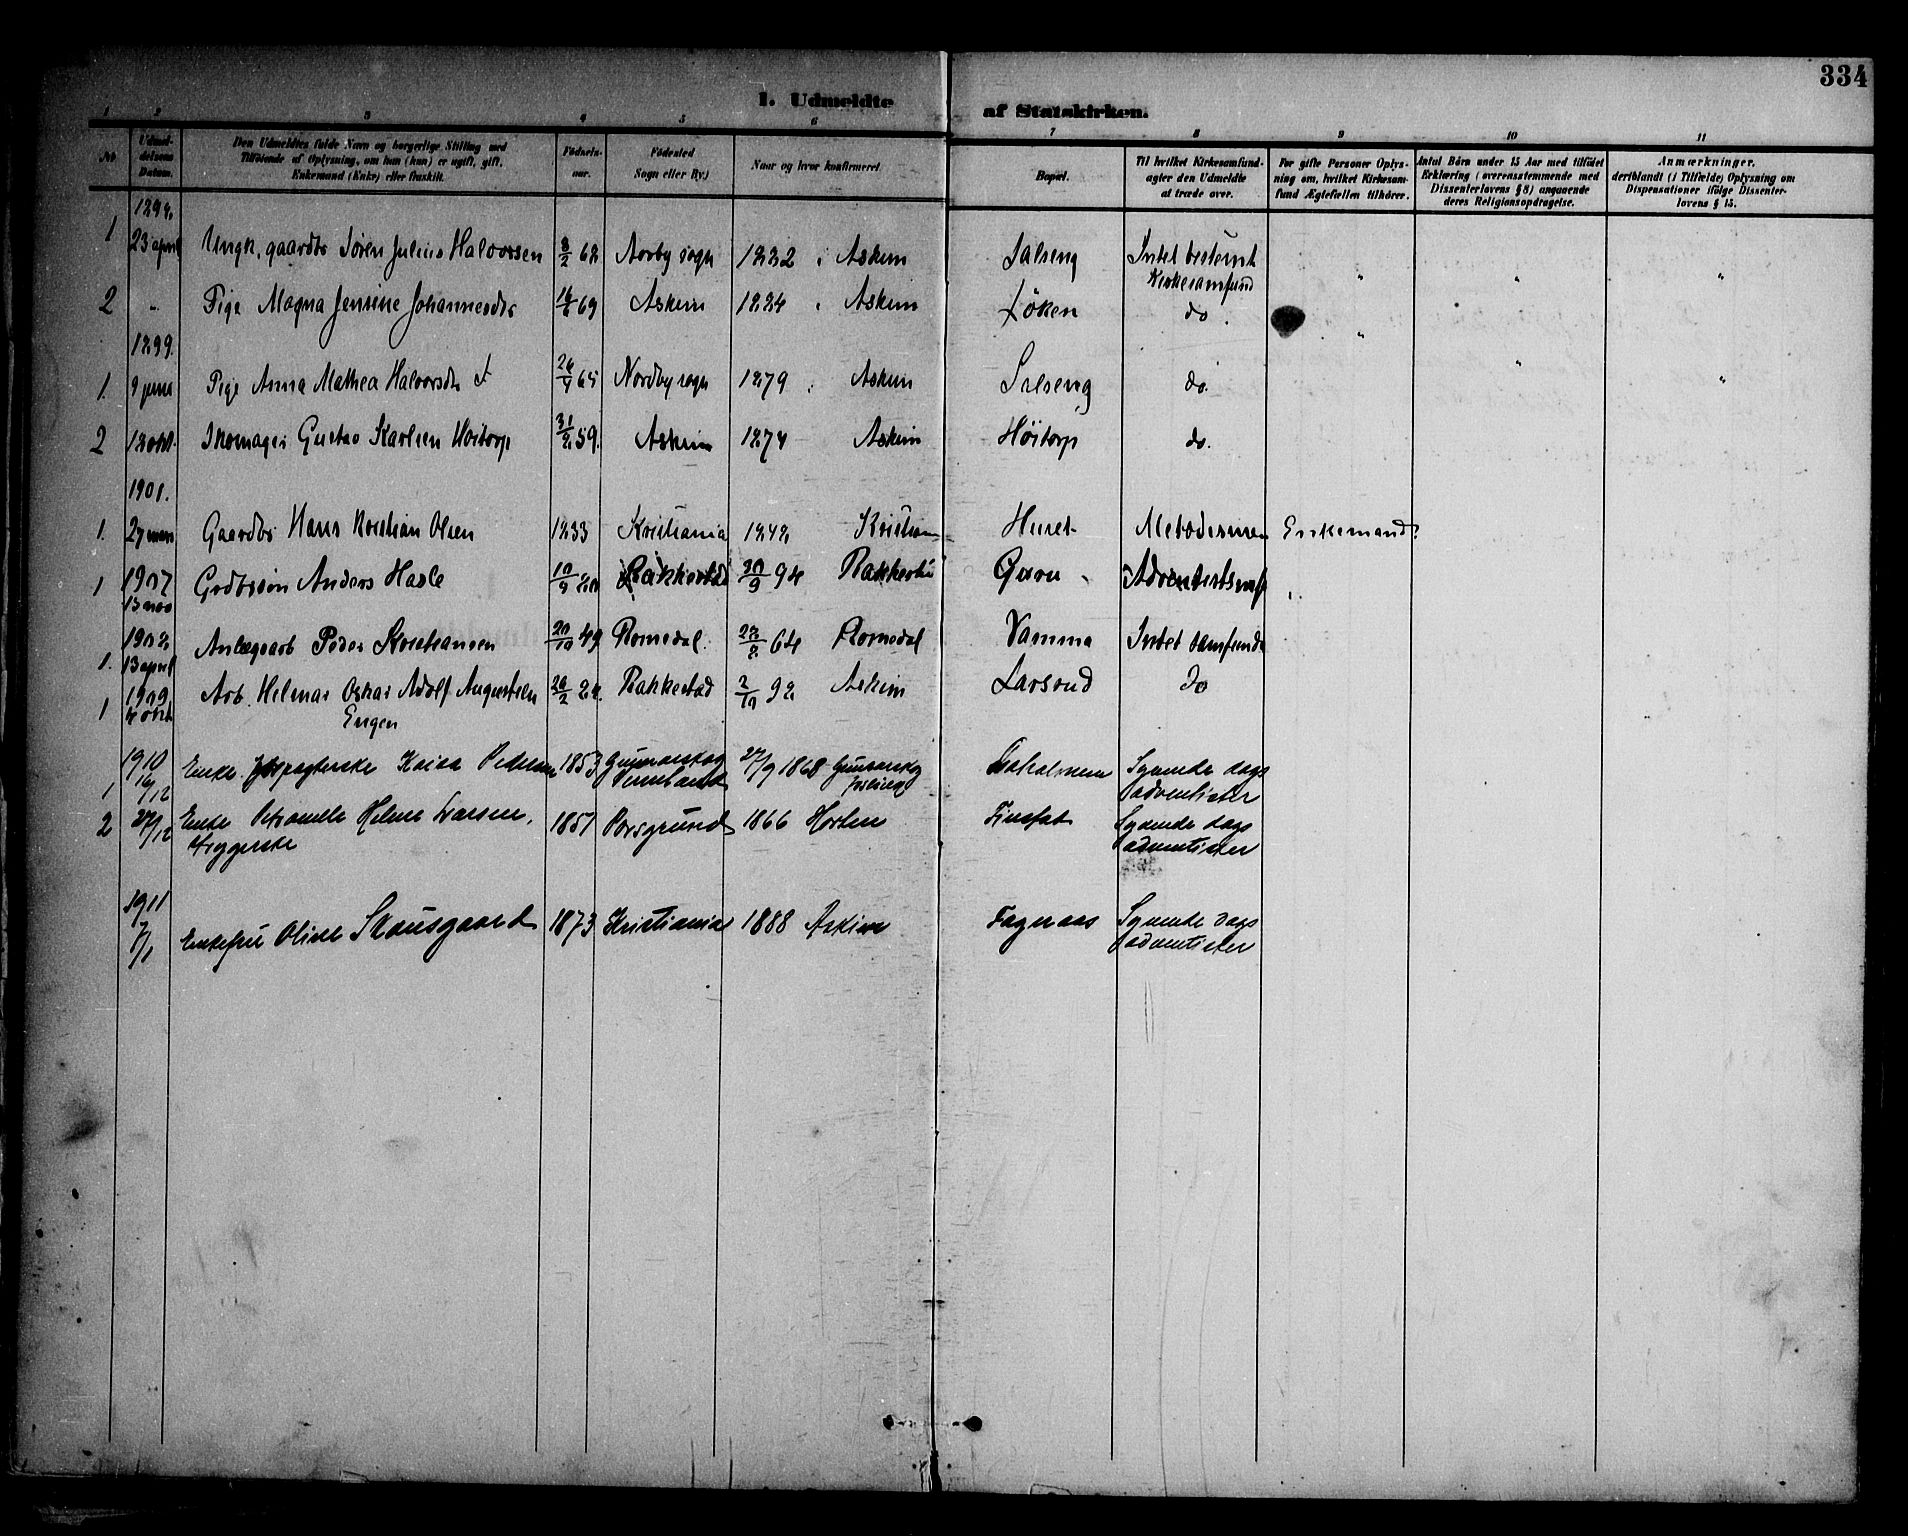 334
I. Udmeldte af Statskirken.
1 2 3 4 5 6 7 8 9 10 11
No
Udmeldelsens Datum.
Den Udmeldtes fulde Navn og borgerlige Stilling med
Tilföiende af Oplysning, om han (hun) er ugift, gift,
Enkemand (Enke) eller fraskilt.
Födselsaar.
Födested
Sogn eller By.)
Naar og hvor konfirmeret.
Bopæl.
Til hvilket Kirkesamfund
agter den Udmeldte
at træde over.
For gifte Personer Oplys-
ning om, hvilket Kirkesam-
fund Ægtefællen tilhörer.
Antal Börn under 15 Aar med tilföiet
Erklæring (overensstemmende med
Dissenterlovens § 8) angaaende
deres Religionsopdragelse.
Anmærkninger,
deriblandt (i Tilfælde) Oplysning om
Dispensationer ifölge Dissenter-
lovens § 15.
1 23 april Ungk. gaardbr Sören Julius Halvorsen Aarby sogn 1882 i Askim Salseng Intet bestemt " " "
Kirkesamfund
2 - Pige Magna Jensine Johannesdtr 69 Askim 1884 Askim Löken do. "
1899.
1. 9 juni Pige Anna Mathea Halvorsdtr 65 Nordby sogn 1879 Askim Salseng do. " "
2 13 okt. Skomager Gustav Karlsen Höitorp 31/2 59. Askim 1874 Askim Höitorp do.
1901.
1. 27 mars Gaardbr Hans Kristian Olsen 1833 Kristiania 1848 Kristian Huset Enkemand
1907
1 13 nov Anders Hasle Rakkestad 94 Rakkesta
1908
1. 13 april Peder Kristiansen 49 Romedal. 64 Romedal Vamma Intet samfund
1909
1 4 okt Arb. Helmar Oskar Adolf Augustsen Rakkestad 92 Askim Larsrud do
Engen
1910
1 16/12 Enke. Kaisa Pedersen 1853 Gunnarskog 27/9 1868 Gunnarskog Syvende dags
adventister
2 27/12 Enke Petronelle Helene Larsen, 1851 Porsgrund 1866 Horten Finstad Syvende dags
adventister
1911
7/1 Enkefru Oline Skausgaard 1873 Kristiania 1888 Askim Fagraas Syvende dags
adventister